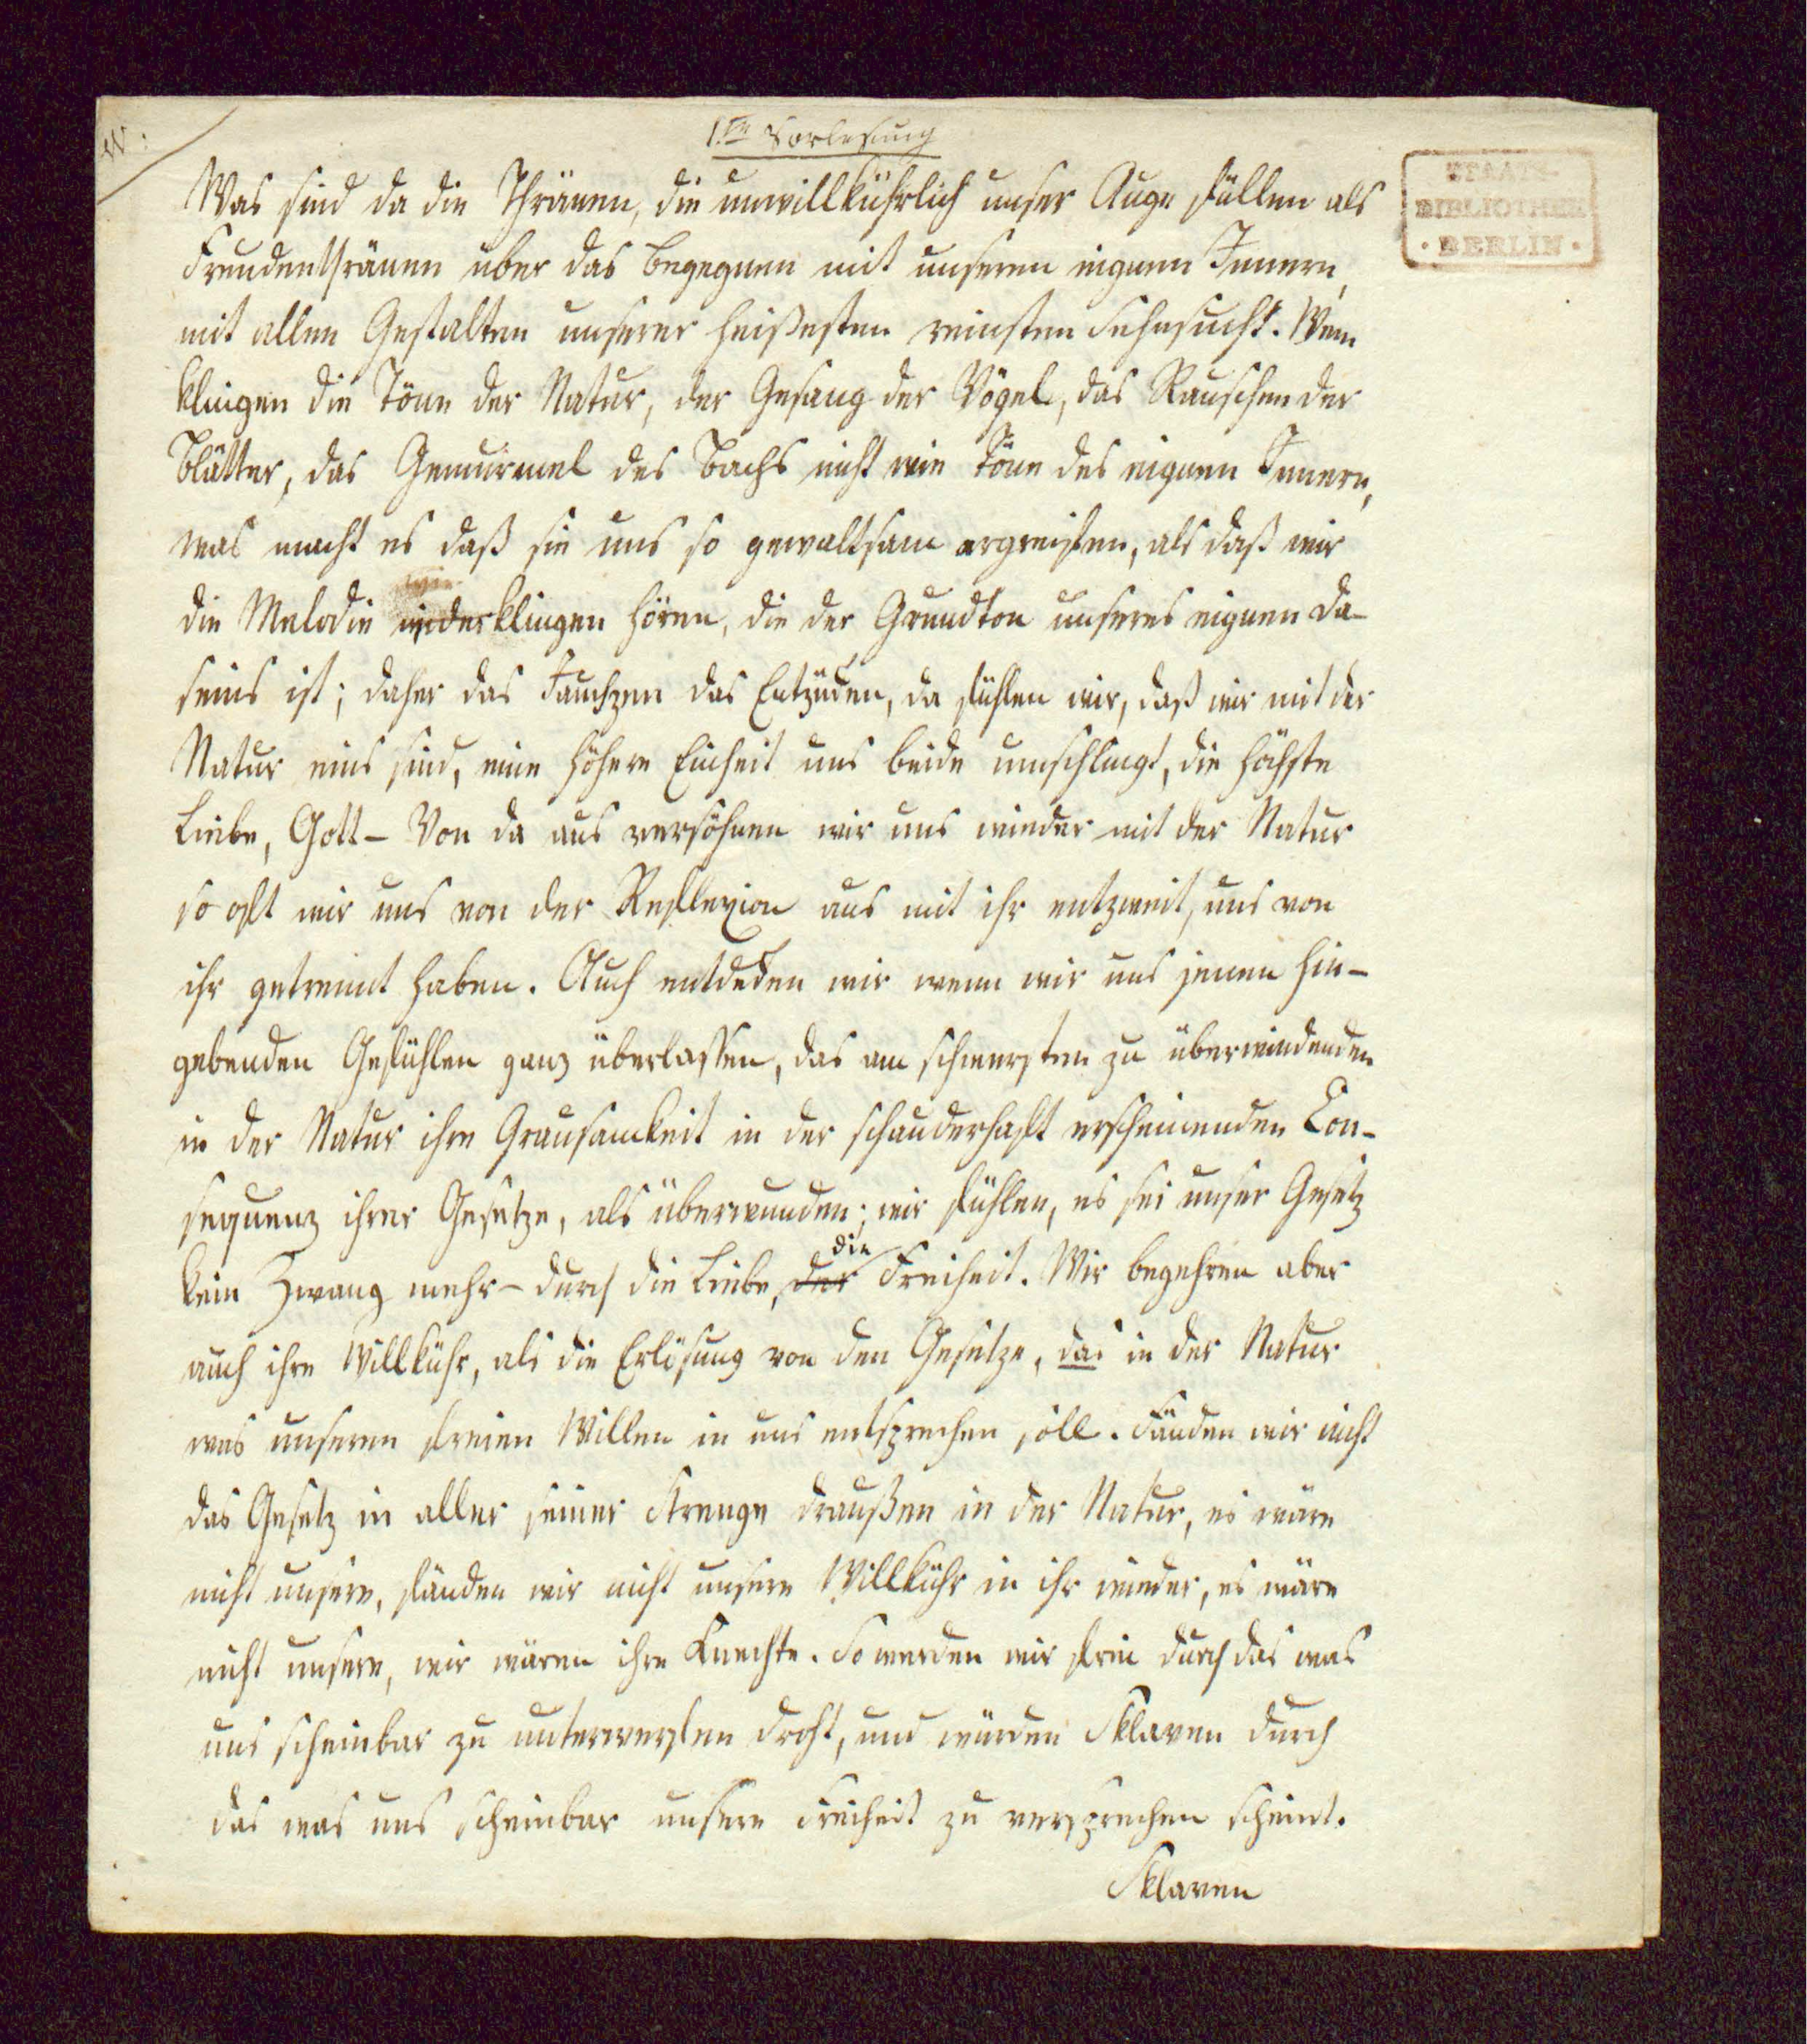 1.te Vorlesung
Was sind da die Thränen, die unwillkührlich unser Auge füllen als
Freudenthränen über das Begegnen mit unserem eignen Innern,
mit allen Gestalten unserer heißesten reinsten Sehnsucht. Wem
klingen die Töne der Natur, der Gesang der Vögel, das Rauschen der
Blätter, das Gemurmel des Bachs nicht wie Töne des eignen Innern,
was macht es daß sie uns so gewaltsam ergreifen, als daß wir
die Melodie wiederklingen hören, die der Grundton unseres eignen Da-
seins ist; daher das Jauchzen das Entzücken, da fühlen wir, daß wir mit der
Natur eins sind, eine höhere Einheit uns beide umschlingt, die höchste
Liebe, Gott – Von da aus versöhnen wir uns wieder mit der Natur
so oft wir uns von der Reflexion aus mit ihr entzweit, uns von
ihr getrennt haben. Auch entdecken wir wenn wir uns jenen hin-
gebenden Gefühlen ganz überlassen, das am schwersten zu überwindenden
in der Natur ihre Grausamkeit in der schauderhaft erscheinenden Con-
sequenz ihrer Gesetze, als überwunden; wir fühlen, es sei unser Gesetz
die
kein Zwang mehr – durch die Liebe, der Freiheit. Wir begehren aber
auch ihre Willkühr, als die Erlösung von den Gesetze, das in der Natur
was unserem freien Willen in uns entsprechen soll. Fänden wir nicht
das Gesetz in aller seiner Strenge draußen in der Natur, es wäre
nicht unsere, fänden wir nicht unsere Willkühr in ihr wieder, es wäre
nicht unsere, wir wären ihre Knechte. So werden wir frei durch das was
uns scheinbar zu unterwerfen droht, und würden Sklaven durch
das was uns scheinbar unsere Freiheit zu versprechen scheint.
Sklaven
STAATS-
BIBLIOTHEK
· BERLIN ·